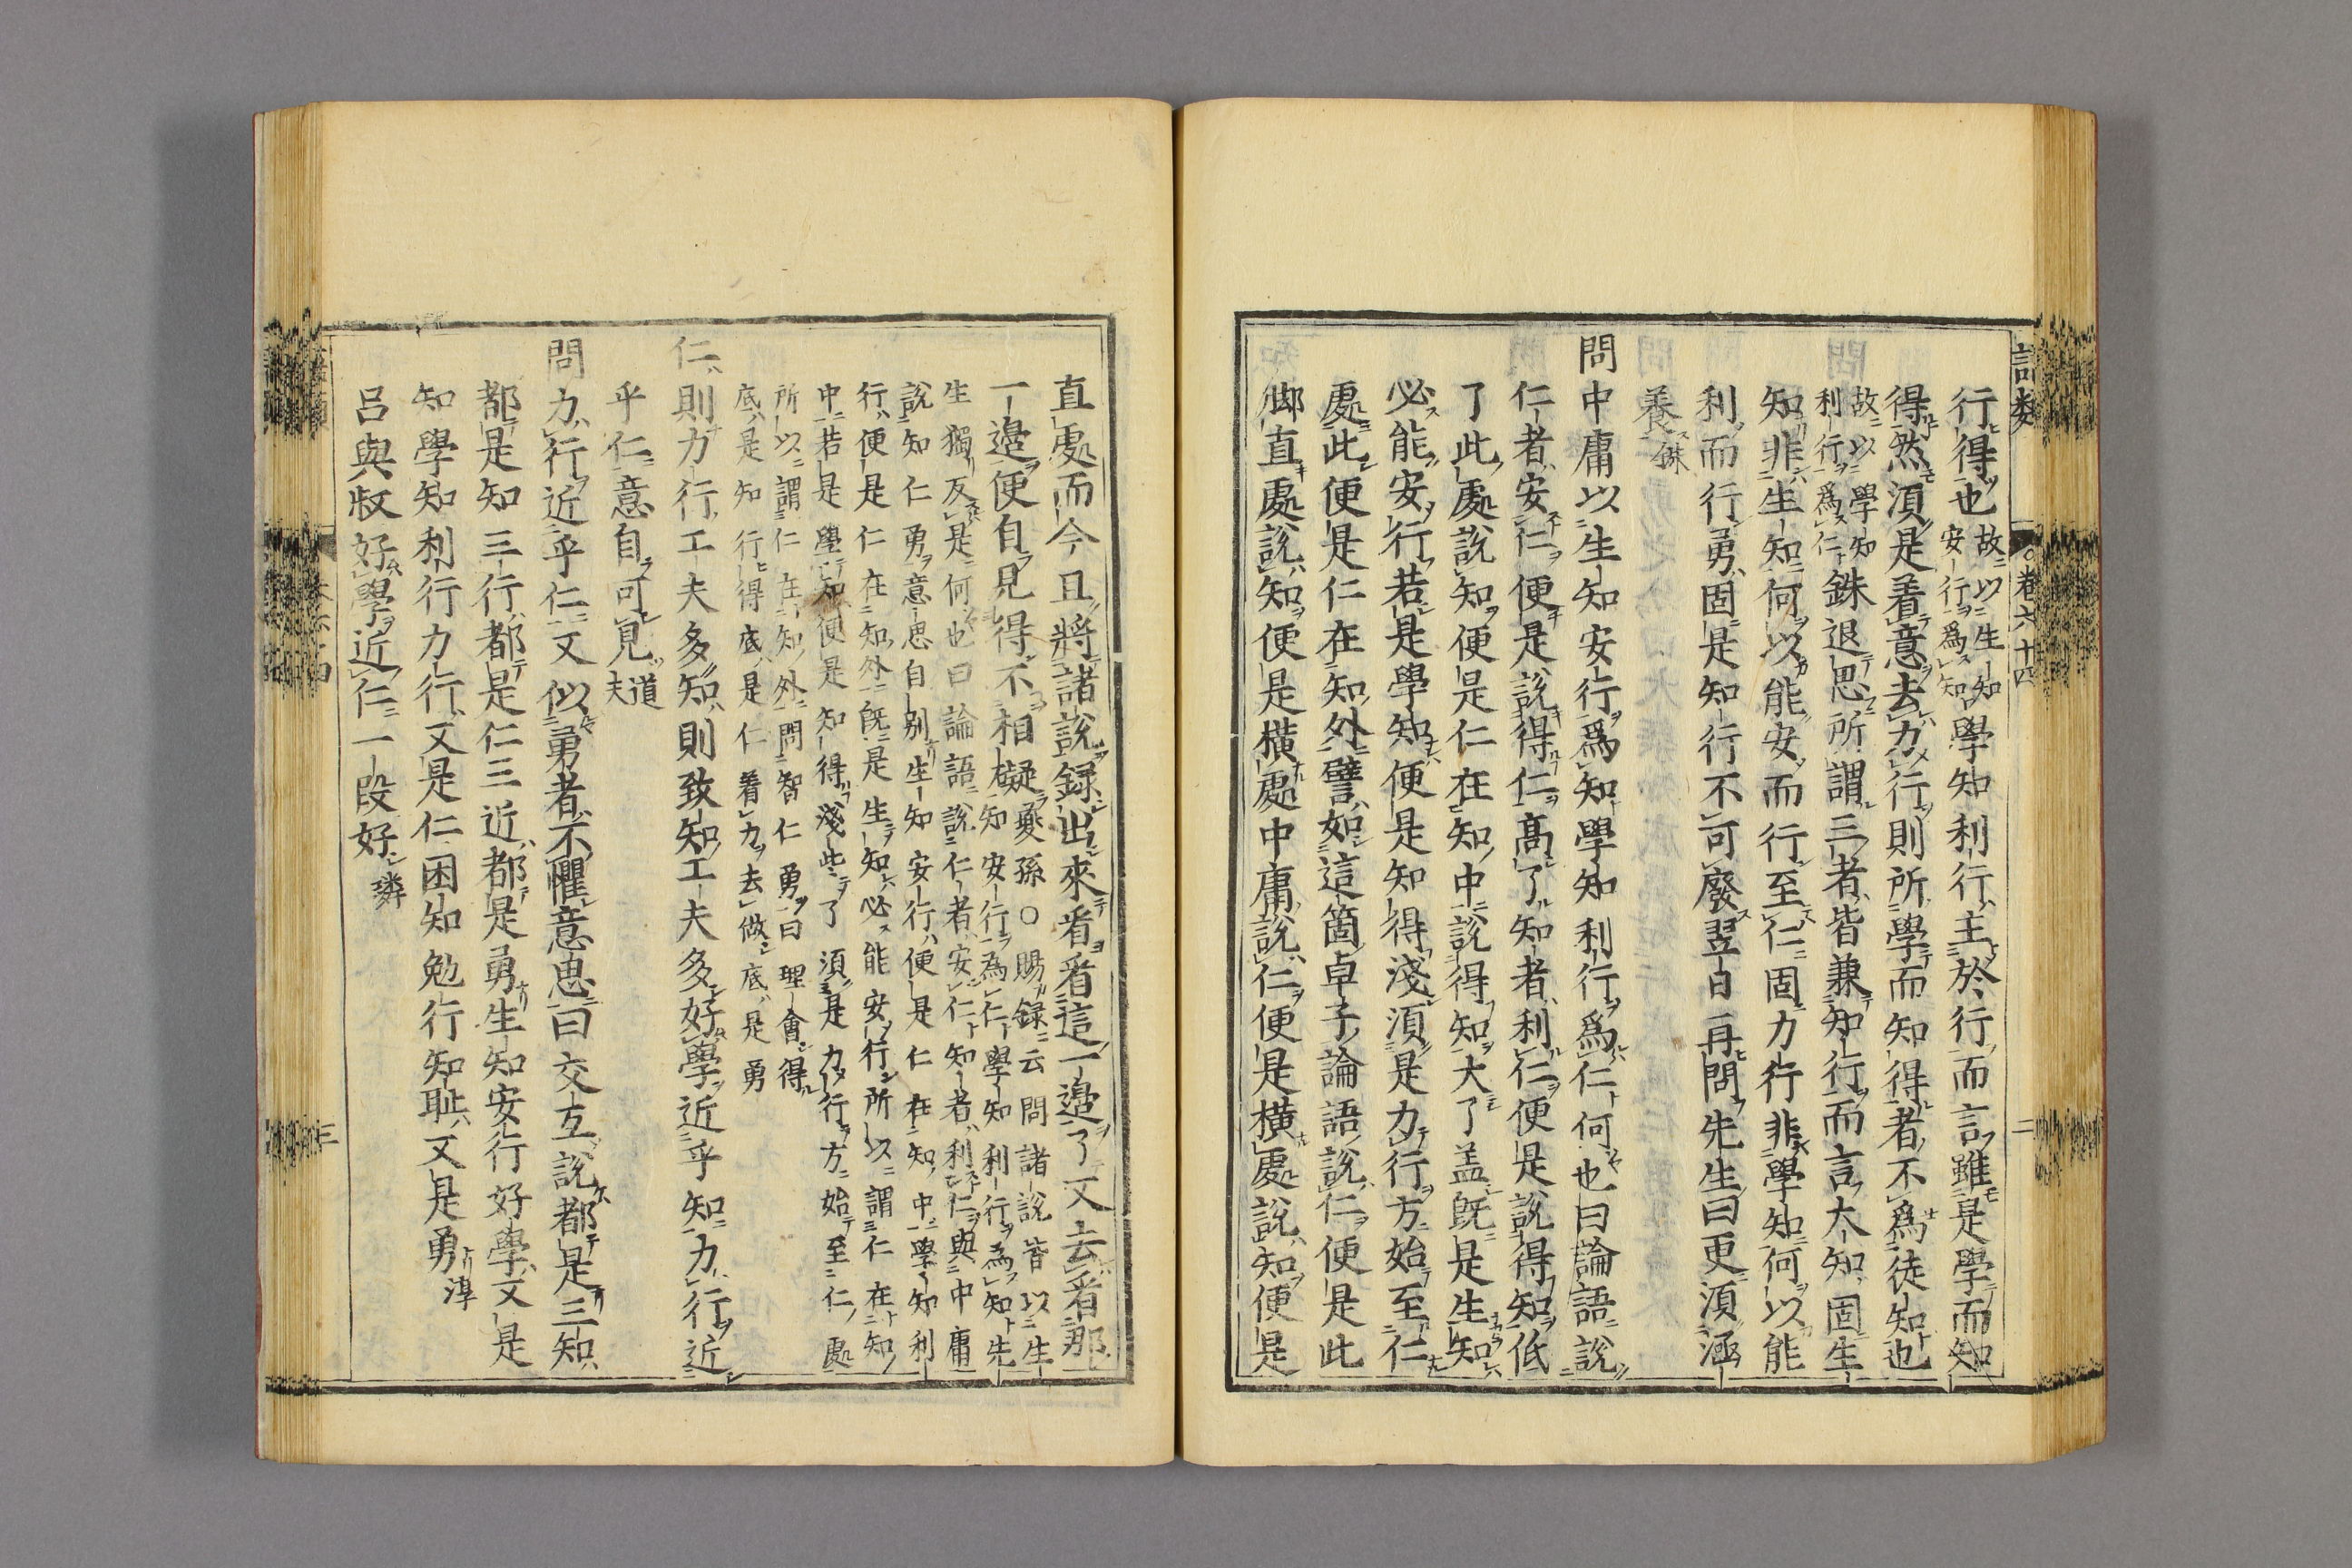 語類 ○卷六十四 二
行得也故以生知安行爲知學知利行主於行而言雖是學而知
得然須是着意去力行則所學而知得者不爲徒知也
故以學知利行爲仁銖退思所謂三者皆兼知行而言大知固生
知非生知何以能安而行至仁固力行非學知何以能
利而行勇固是知行不可廢翌日再問先生曰更須涵
養銖
問中庸以生知安行爲知學知利行爲仁何也曰論語說
仁者安仁便是說得仁高了知者利仁便是說得知低
了此處說知便是仁在知中說得知大了盖既是生知
必能安行若是學知便是知得淺須是力行方始至仁
處此便是仁在知外譬如這箇卓子論語說仁便是此
脚直處說知便是橫處中庸說仁便是橫處說知便是
直處而今且將諸說録出來看看這一邊了又去看那
一邊便自見得不相礙夔孫○賜録云問諸說皆以生
知安行爲仁學知利行爲知先
生獨反是何也曰論語說仁者安仁知者利仁與中庸
說知仁勇意思自別生知安行便是仁在知中學知利
行便是仁在知外既是生知必能安行所以謂仁在知
中若是學知便是知得淺些了須是力行方始至仁處
所以謂仁在知外問智仁勇曰理會得
底是知行得底是仁着力去做底是勇
仁則力行工夫多知則致知工夫多好學近乎知力行近
乎仁意自可見道夫
問力行近乎仁又似勇者不懼意思曰交互說都是三知
都是知三行都是仁三近都是勇生知安行好學又是
知學知利行力行又是仁困知勉行知恥又是勇淳
呂與叔好學近仁一段好璘
三